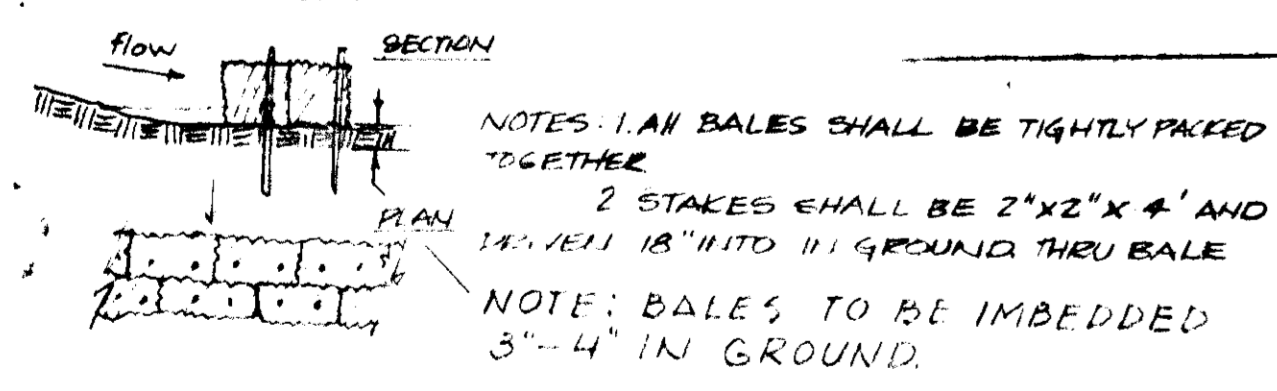 flow
SECTION
NOTES: 1. All BALES SHALL BE TIGHTLY PACKED
TOGETHER
2 STAKES SHALL BE 2"X2"X 4' AND
DRIVEN 18" INTO IN GROUND THRU BALE
PLAN
NOTE: BALES TO BE IMBEDDED
3"-4" IN GROUND.